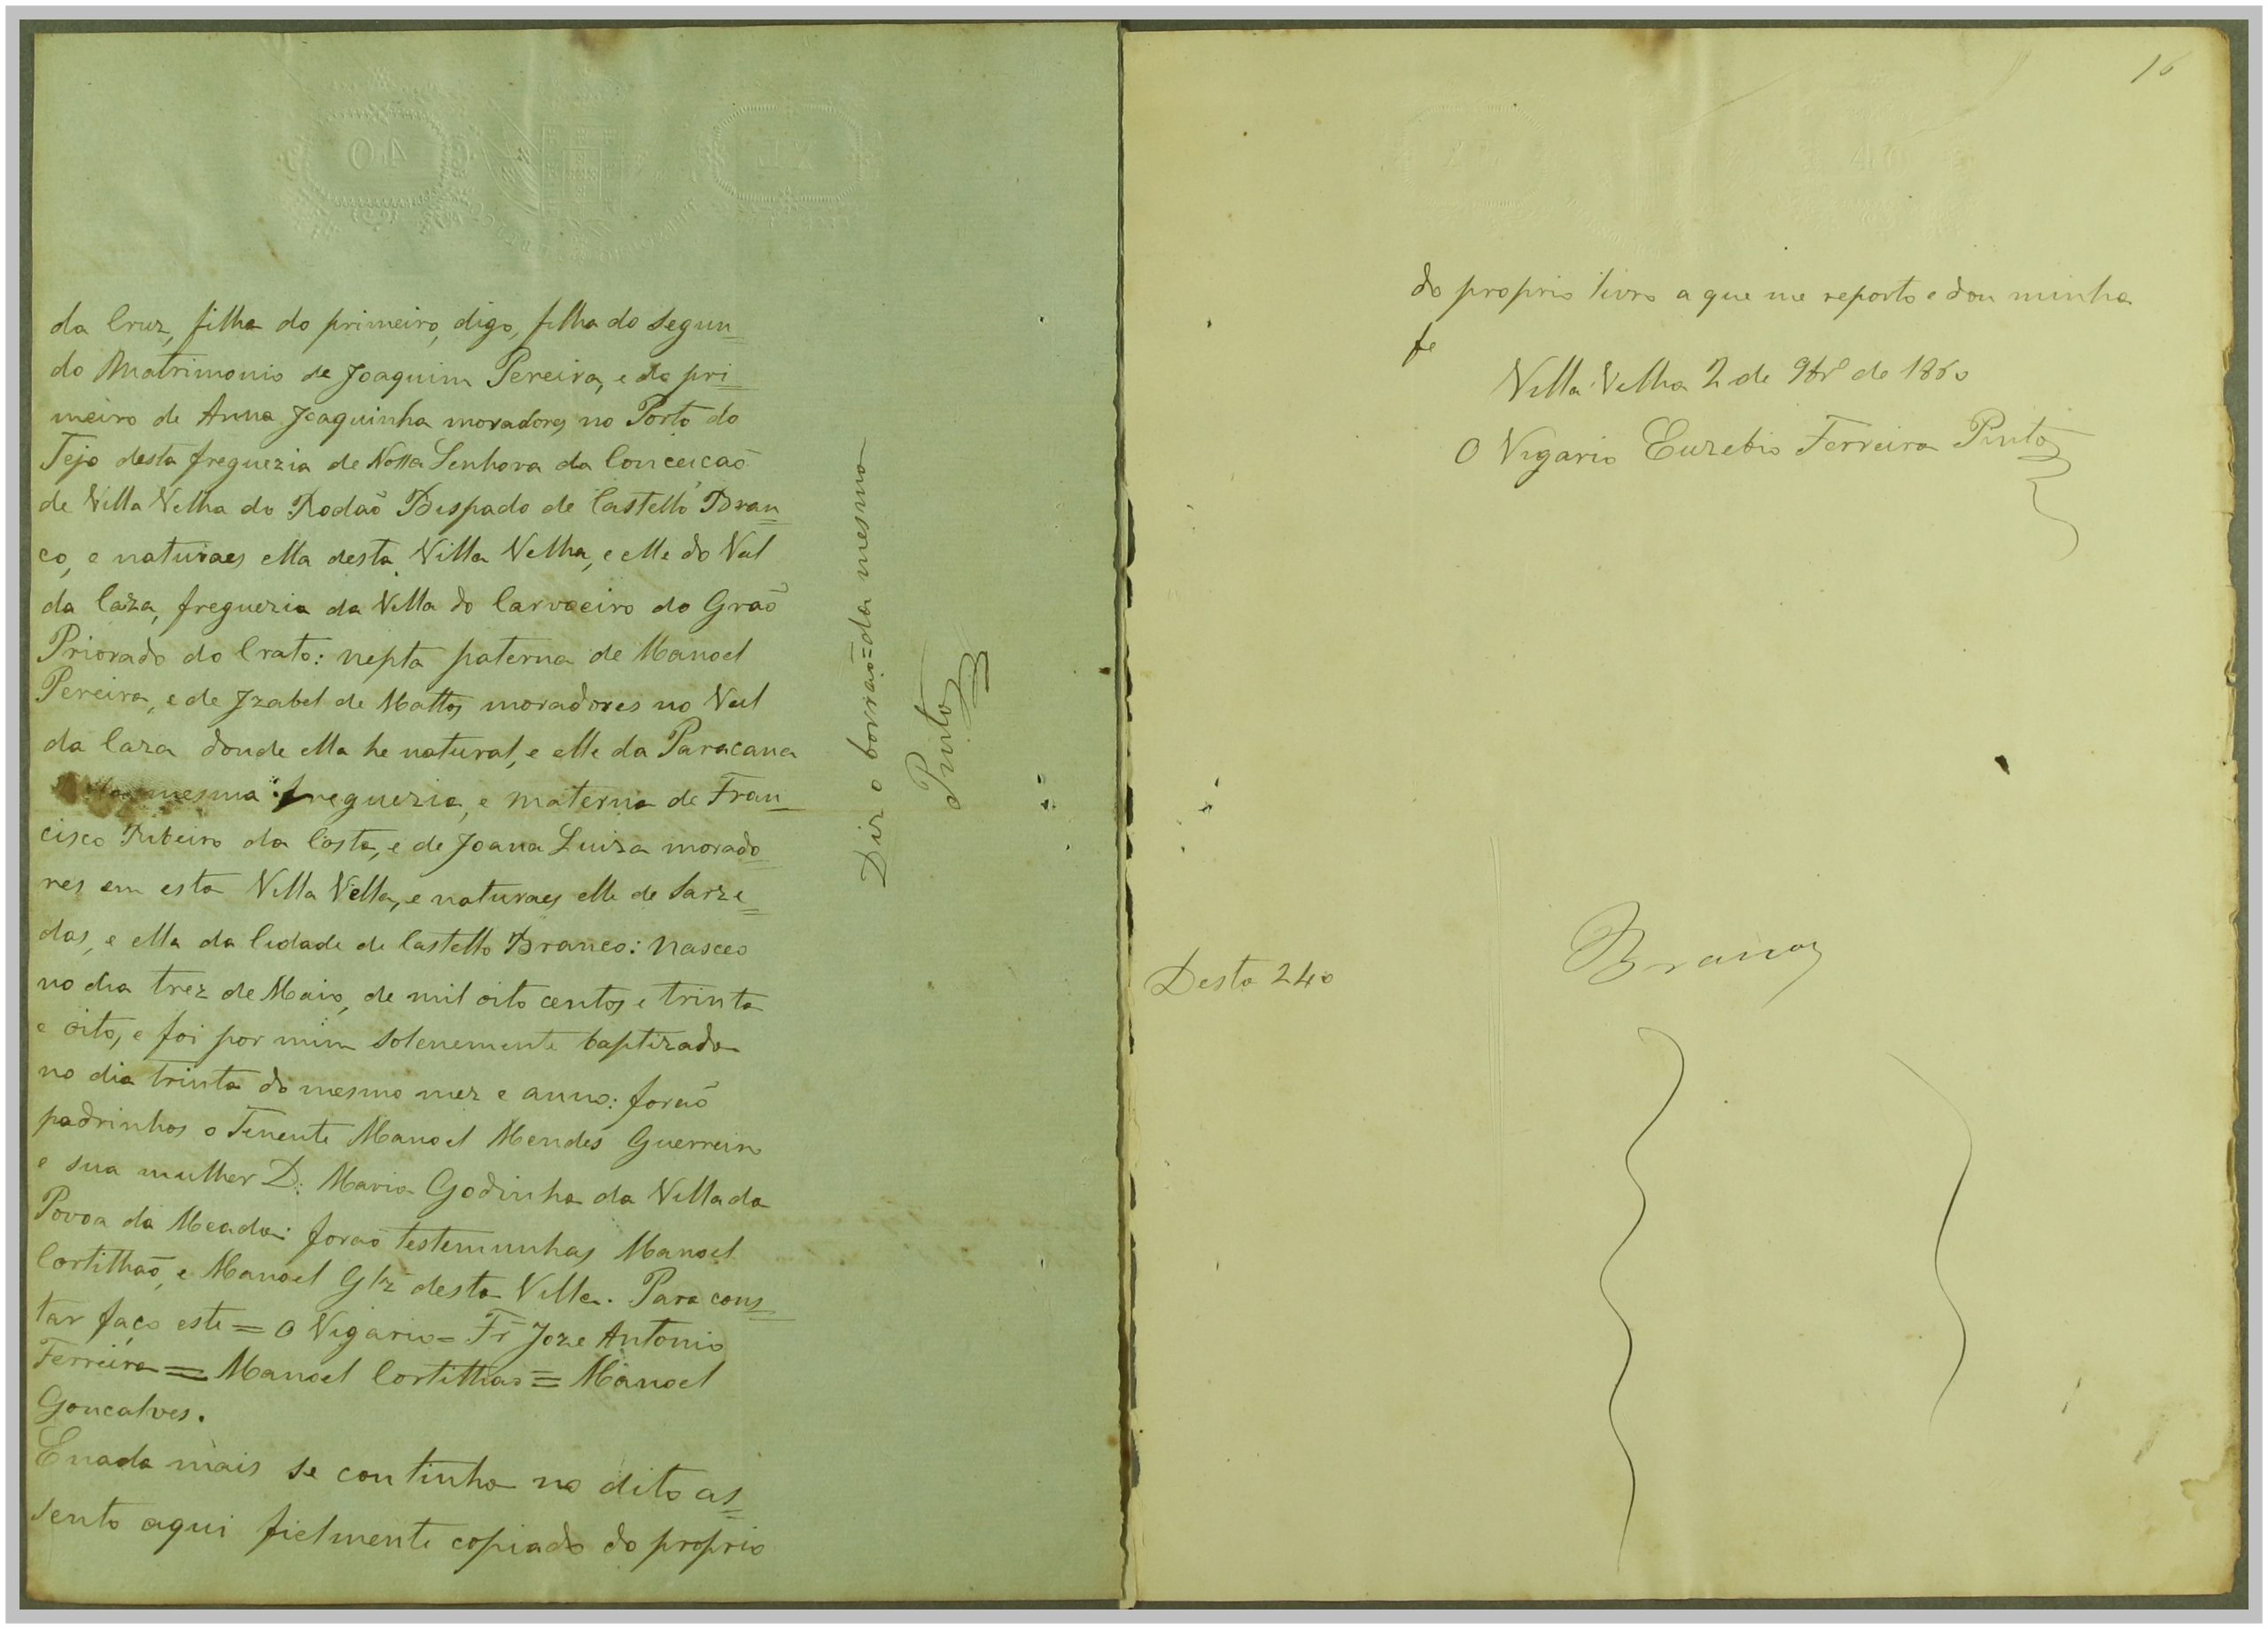 da Cruz, filha do primeiro, digo, filha do segun
do Matrimonio de Joaquim Pereira, e do pri
meiro de Anna Joaquinha moradores no Porto do
Tejo desta freguezia de Nossa Senhora da Conceicaõ
de Villa Velha do Rodaõ Bispado de Castello Bran
co, e naturaes ella desta Villa Velha, e elle do Val
da Caza, freguezia da Villa do Carvoeiro do Graõ
Priorado do Crato: nepta paterna de Manoel
Pereira, e de Izabel de Mattos moradores no Val
da Caza donde ella he natural, e elle da Paracana
da mesma freguezia, e materna de Fran
cisco Ribeiro da Costa, e de Joana Luiza morado
res em esta Villa Vella, e naturaes elle de Sarze
das, e ella da Cidade de Castello Branco: nasceo
no dia trez de Maio, de mil oito centos e trinta
e oito, e foi por mim solenemente baptizada
no dia trinta do mesmo mez e anno: foraõ
padrinhos o Tenente Manoel Mendes Guerreiro
e sua mulher D. Maria Godinha da Villa da
Povoa da Meada: foraõ testemunhas Manoel
Cortilhaõ, e Manoel Glz desta Villa. Para cons
tar faço este = O Vigario = Fr Joze Antonio
Ferreira = Manoel Cortilhaõ = Manoel
Goncalves.
E nada mais se continha no dito as
sento aqui fielmente copiado do proprio
Diz o borraõ = da mesma
Pinto
16
do proprio livro a que me reporto e dou minha
fe
Villa Velha 2 de 9br.o de 1860
O Vigario Euzebio Ferreira Pinto
Desta 240